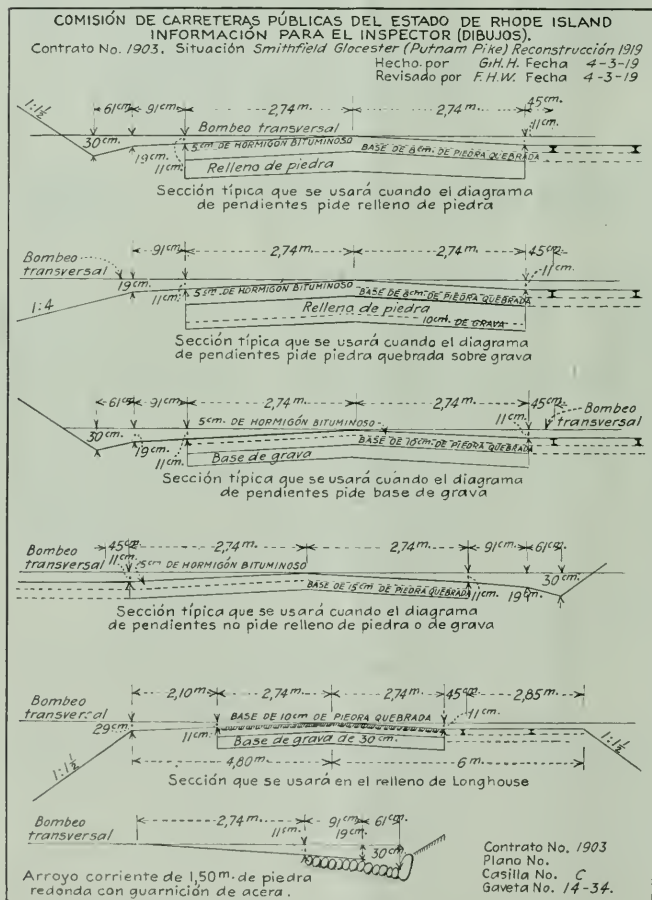 COMISIÓN DE CARRETERAS PÚBLICAS DEL ESTADO DE RHODE ISLAND
INFORMACIÓN PARA EL INSPECTOR (DIBUJOS).
Contrato No. 1903. Situación Smithfield Glocester (Putnam Pike) Reconstrucción 1919
Hecho por G.H.H. Fecha 4-3-19
Revisado por F.H.W. Fecha 4-3-19
1:1½ 61cm. 91cm. 2,74m. 2,74m. 45cm.
30cm. Bombeo transversal 11cm.
19cm. 5cm DE HORMIGÓN BITUMINOSO BASE DE 8cm. DE PIEDRA QUEBRADA
11cm. Relleno de piedra
Sección típica que se usará cuando el diagrama
de pendientes pide relleno de piedra
91cm. 2,74m. 2,74m. 45cm.
Bombeo
transversal 19cm. 11cm.
1:4 11cm. 5cm. DE HORMIGÓN BITUMINOSO BASE DE 8cm. DE PIEDRA QUEBRADA
Relleno de piedra
10cm. DE GRAVA
Sección típica que se usará cuando el diagrama
de pendientes pide piedra quebrada sobre grava
61cm 91cm. 2,74m. 2,74m. 45cm.
5cm. DE HORMIGÓN BITUMINOSO 11cm. Bombeo
transversal
30cm. 19cm. BASE DE 10cm. DE PIEDRA QUEBRADA
11cm. Base de grava
Sección típica que se usará cuando el diagrama
de pendientes pide base de grava
45cm 2,74m. 2,74m. 91cm. 61cm.
Bombeo
transversal 11cm. 5cm DE HORMIGÓN BITUMINOSO 30cm.
BASE DE 15cm. DE PIEDRA QUEBRADA 11cm. 19cm.
Sección típica que se usará cuando el diagrama
de pendientes no pide relleno de piedra o de grava
2,10m. 2,74m. 2,74m. 45cm. 2,85m.
Bombeo
transversal BASE DE 10cm DE PIEDRA QUEBRADA
29cm. 11cm. 11cm.
Base de grava de 30cm.
1:1½ 4,80m. 6m. 1:1½
Sección que se usará en el relleno de Longhouse
Bombeo
transversal 2,74m. 91cm. 61cm.
11cm. 19cm.
30cm.
Arroyo corriente de 1,50m. de piedra
redonda con guarnición de acera.
Contrato No. 1903
Plano No.
Casilla No. C
Gaveta No. 14-34.